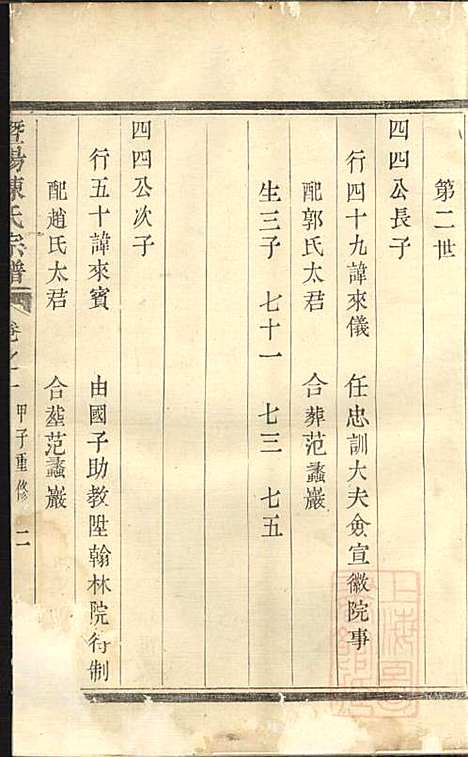 第二世
四四公長子
行四十九諱來儀 任忠訓大夫僉宣徽院事
配郭氏太君 合葬范蠡巖
生三子 七十一 七三 七五
四四公次子
行五十諱來賓 由國子助教陞翰林院行制
配趙氏太君 合塟范蠡巖
暨陽陳氏宗譜 卷之一 甲子重修 二